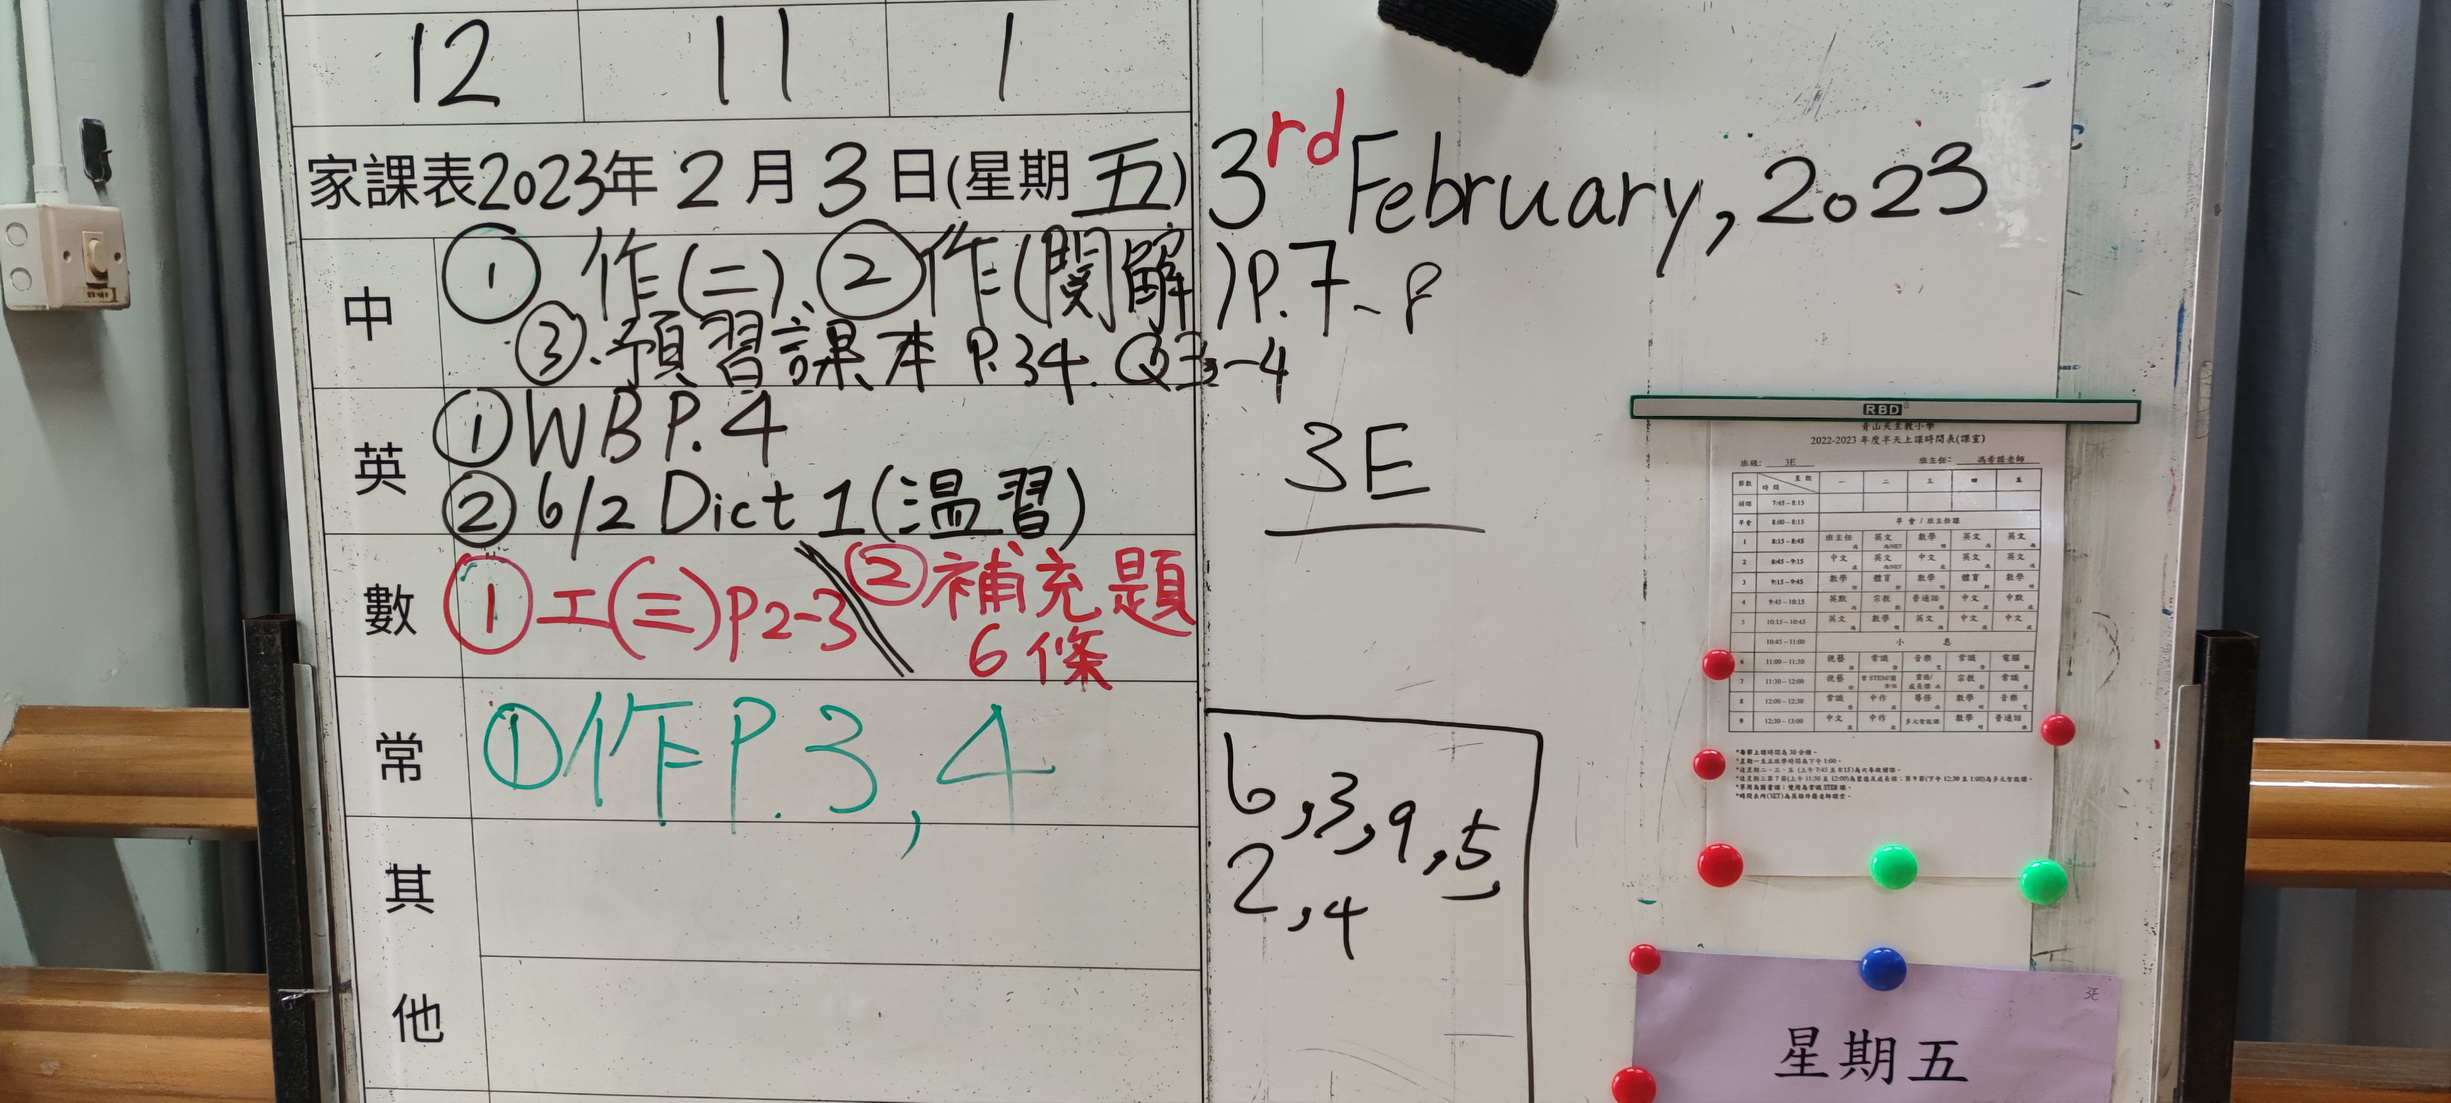 12 11 1
家課表2023年 2 月 3 日(星期 五)
3rd February, 2023
中
① 作(二)、② 作(閱解)P.7-8
③.預習課本 P.34. Q3-4
英
① WB P.4
② 6/2 Dict 1(溫習)
數
① 工(三)P2-3 ② 補充題
6條
常
① 作 P.3,4
其
他
3E
6,3,9,5,
2,4
RBD
青山天主教小學
2022-2023 年度半天上課時間表(課室)
班級: 3E 班主任:
節數 時間 星期 一 二 三 四 五
7:45-8:15
早會 8:00-8:15 早會 / 班主任課
1 8:15-8:45 班主任 英文 數學 英文 英文
2 8:45-9:15 中文 英文 中文 英文 英文
3 9:15-9:45 數學 體育 數學 體育 數學
4 9:45-10:15 英默 宗教 普通話 中文 中默
5 10:15-10:45 英文 數學 英文 中文 中文
10:45-11:00 小 息
6 11:00-11:30 視藝 常識 音樂 常識 電腦
7 11:30-12:00 視藝 常STEM/圖 成長課 宗教 常識
8 12:00-12:30 常識 中作 數學 音樂
9 12:30-13:00 中文 中作 多元智能課 數學 普通話
*每節上課時間為 30 分鐘。
*星期一至五放學時間為下午 1:00。
3E
星期五